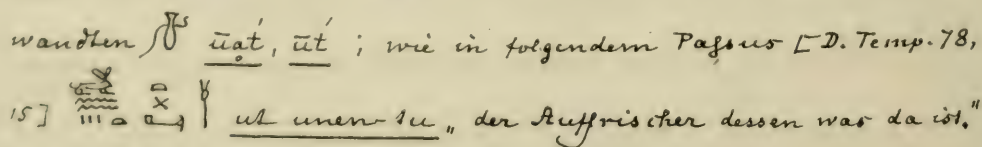 wandten ūạt́, ūt́ ; wie in folgendem Passus [D. Temp. 78,
15] ut unen-tu „der Auffrischer dessen was da ist."